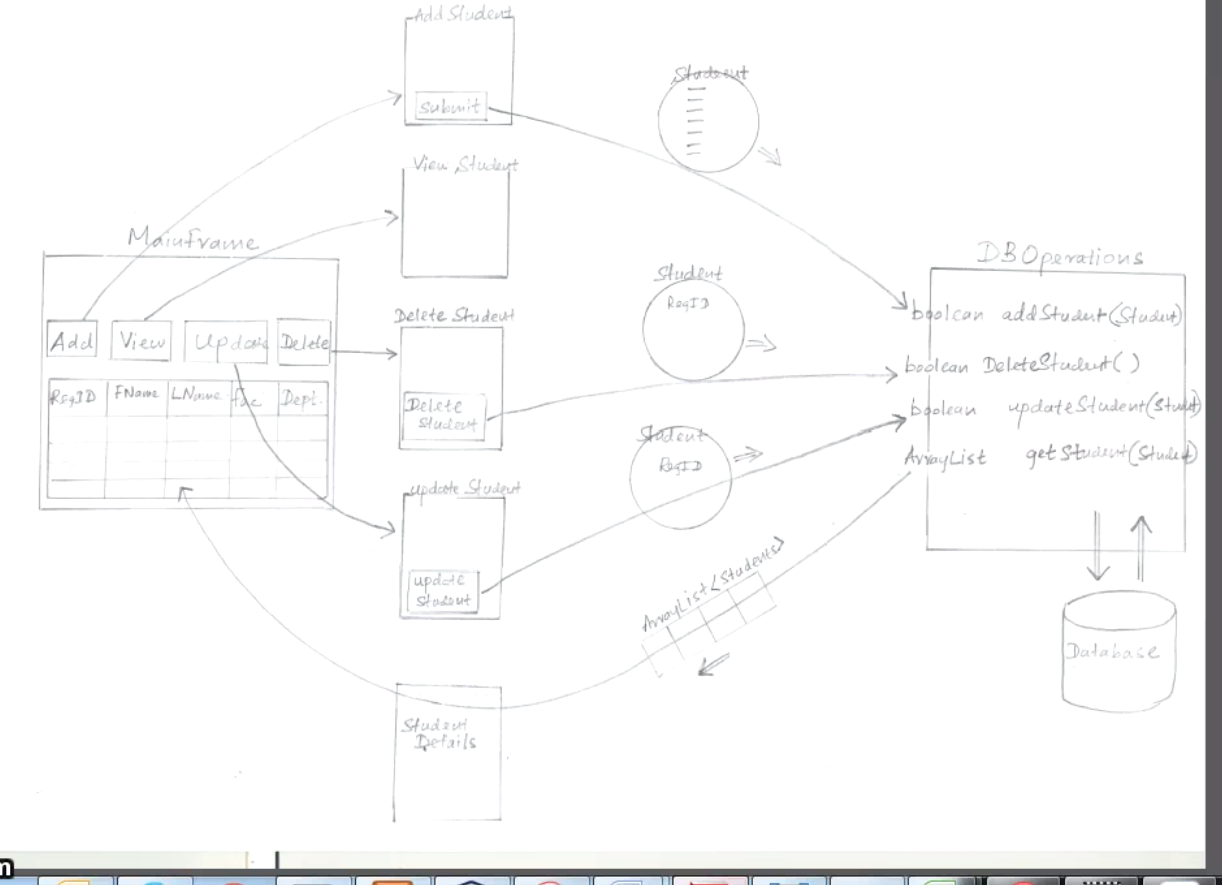 Add Student
submit
Student
View Student
MainFrame
Add
View
Update
Delete
RegID
FName
LName
fac
Dept.
Delete Student
Delete
Student
update Student
update
Student
Student
Details
Student
RegID
Student
RegID
ArrayList<Students>
DBOperations
boolean addStudent(Student)
boolean DeleteStudent()
boolean updateStudent(Student)
ArrayList getStudent(Student)
Database
m